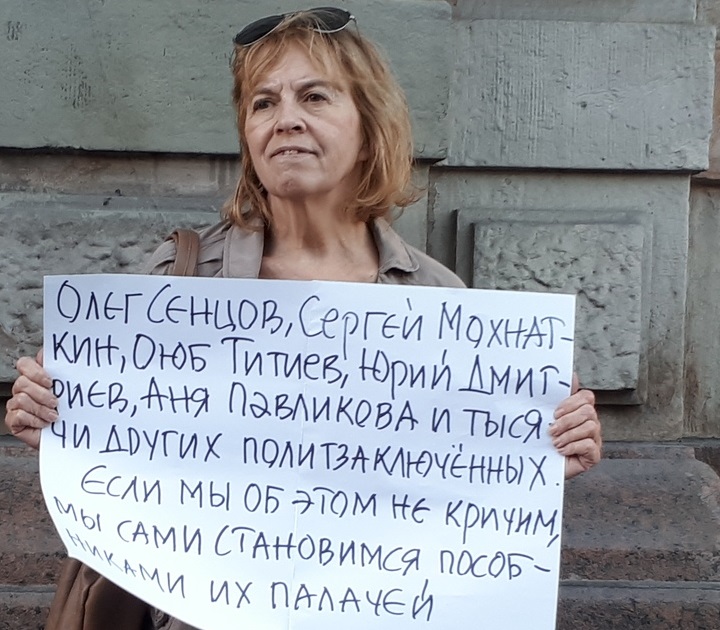 Олег Сенцов, Сергей Мохнат-
кин, Оюб Титиев, Юрий Дмит-
риев, Аня Павликова и тыся-
чи других политзаключённых.
Если мы об этом не кричим,
мы сами становимся пособ-
никами их палачей